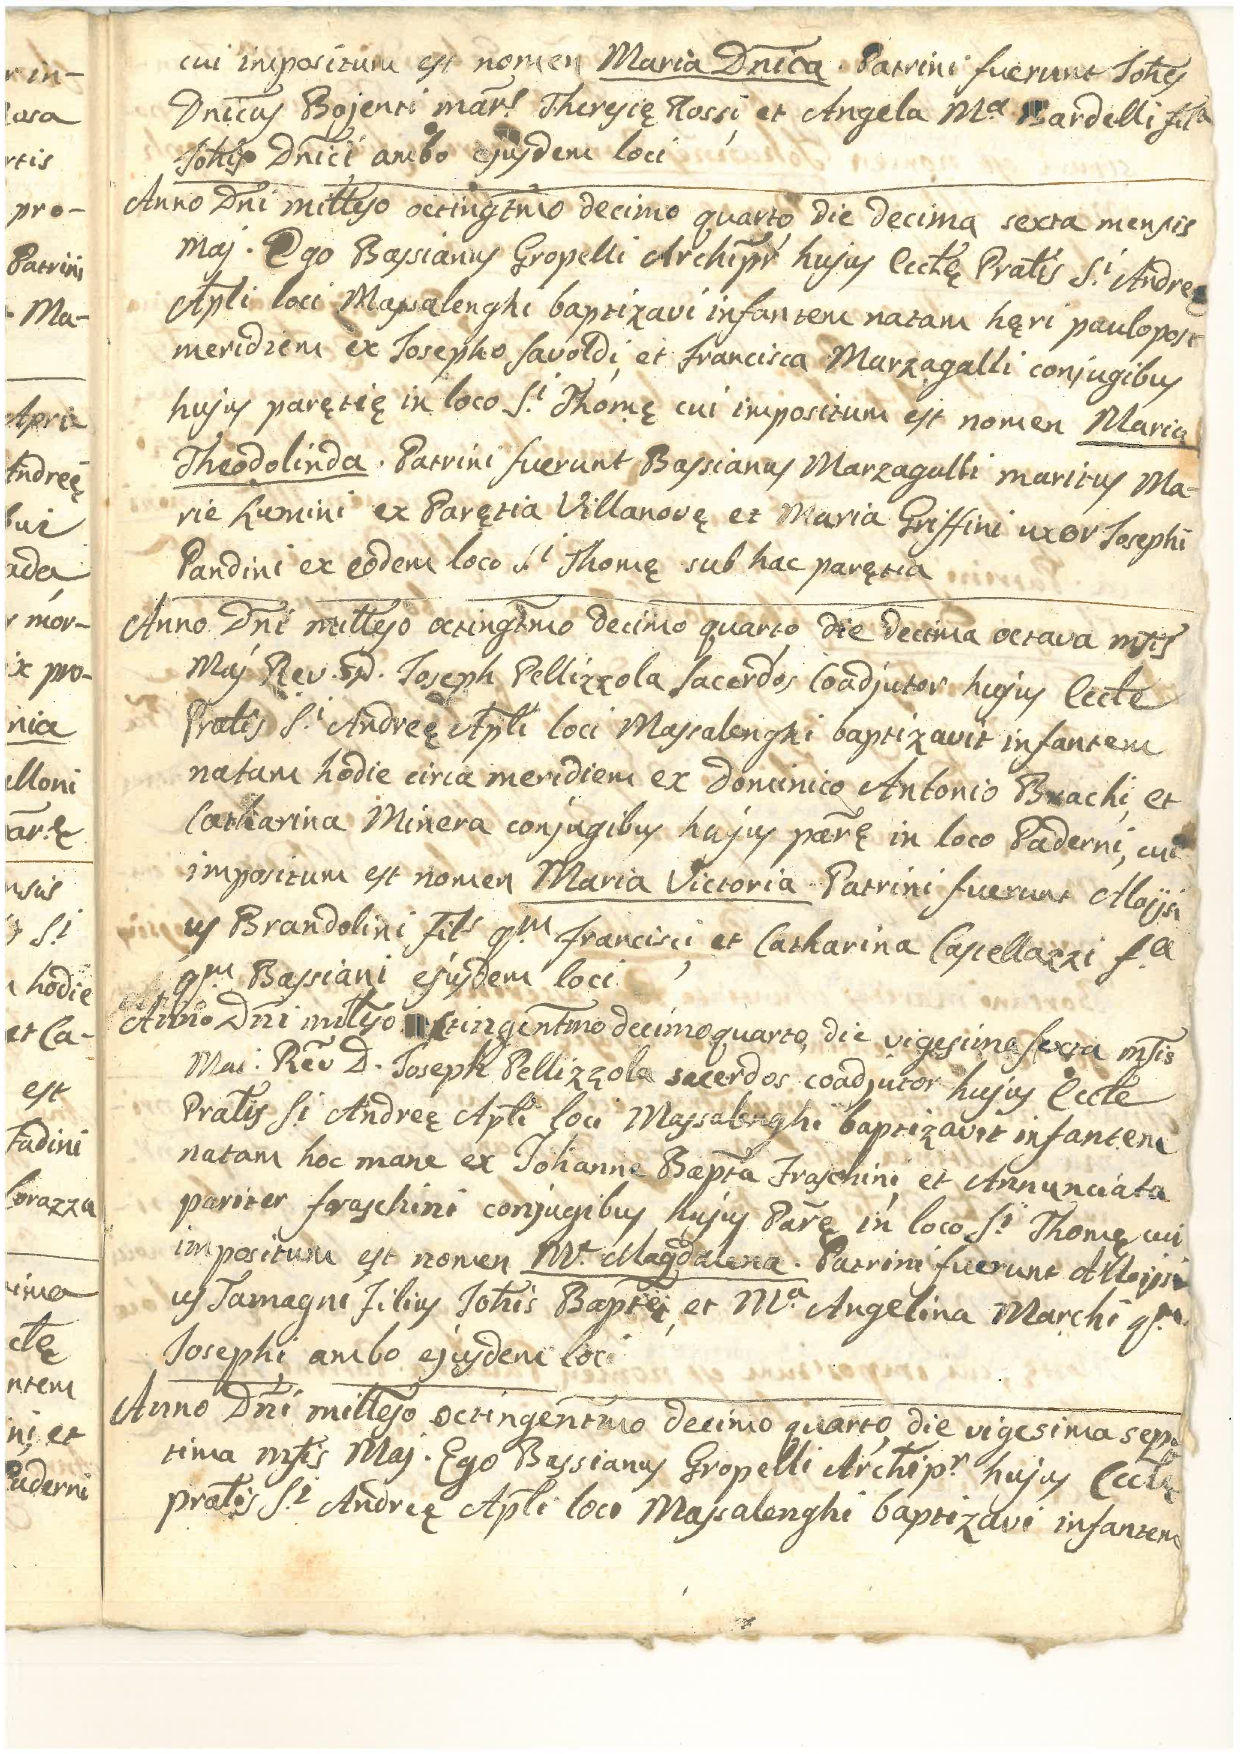 cui impositum est nomen Maria Dnica. Patrini fuerunt Johes
Dnicus Bojenti mar.s Theresię Rossi, et Angela M.a Bardelli fil.a
Johis Dnici ambo ejusdem loci
Anno Dni millesjo octingtmo decimo quarto, die decima sexta mensis
Maj. Ego Bassianus Gropelli Archipr hujus Ecclę Pratis S.i Andreę
Apli loci Massalenghi baptizavi infantem natam hęri paulopost
meridiem ex Josepho Savoldi, et Francisca Marzagalli conjugibus
hujus paręcię in loco S.i Thomę cui impositum est nomen Maria
Theodolinda. Patrini fuerunt Bassianus Marzagalli maritus Ma-
rie Lumini ex Paręcia Villanovę et Maria Griffini uxor Josephi
Pandini ex eodem loco S.i Thomę sub hac paręcia
Anno Dni millesjo octingtmo decimo quarto, die decima octava msis
Maj Rev. D. Joseph Pellizzola Sacerdos Coadjutor hujus Eccle
Pratis S.i Andreę Apli loci Massalenghi baptizavit infantem
natam hodie circa meridiem ex Dominico Antonio Brachi, et
Catharina Minera conjugibus hujus parę in loco Paderni, cui
impositum est nomen Maria Victoria. Patrini fuerunt Aloijsi
us Brandolini fil.s q.m Francisci, et Catharina Castellazzi f.a
q.m Bassiani ejusdem loci
Anno Dni millesjo octingentmo decimoquarto, die vigesima sexta msis
Mai. Rev D. Joseph Pellizzola sacerdos coadjutor hujus Eccle
Pratis Si Andreę Apli loci Massalenghi baptizavit infantem
natam hoc mane ex Johanne Bapta Fraschini, et Annunciata
pariter fraschini conjugibus hujus Parę in loco S.i Thomę cui
impositum est nomen M.a Magdalena. Patrini fuerunt Aloijsi
us Tamagni Filius Johis Baptę, et M.a Angelina Marchi q.m
Josephi ambo ejusdem loci
Anno Dni millesjo octingentmo decimo quarto, die vigesima sep
tima msis Maj. Ego Bassianus Gropelli Archip.r hujus Ecclę
pratis S.i Andreę Apli loci Massalenghi baptizavi infantem